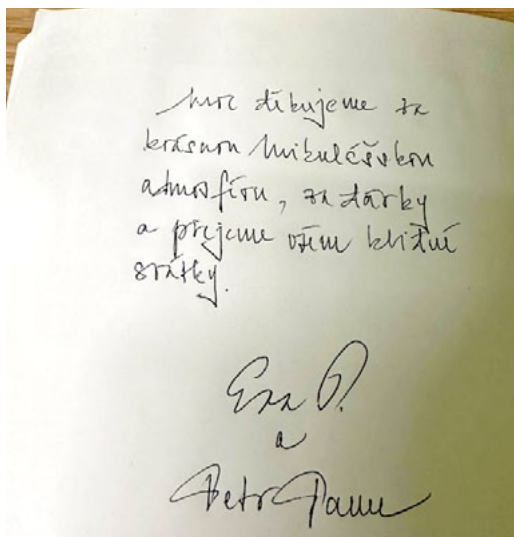 Moc děkujeme za
krásnou Mikulášskou
atmosféru, za dárky
a přejeme všem klidné
svátky.
Eva P.
a
Petr